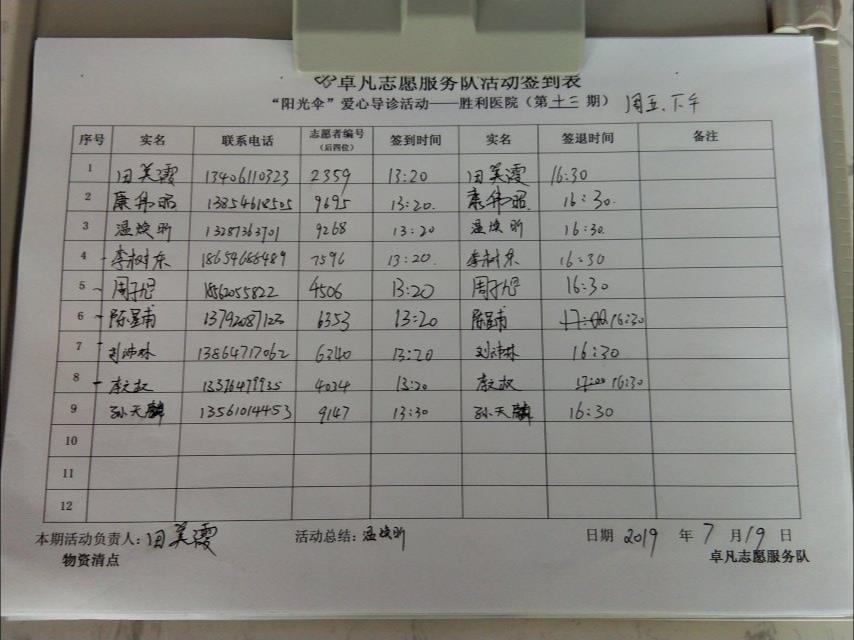 卓凡志愿服务队活动签到表
“阳光伞”爱心导诊活动——胜利医院（第十三期） 周五.下午
序号 实名 联系电话 志愿者编号（后四位） 签到时间 实名 签退时间 备注
1 田美霞 13406110323 2359 13:20 田美霞 16:30
2 康伟昭 13854618505 9695 13:20. 康伟昭 16:30.
3 温焕昕 13287363701 9268 13:20 温焕昕 16:30.
4 李树东 18654668489 7596 13:20. 李树东 16:30
5 周子怡 18562055822 4506 13:20 周子怡 16:30
6 陈显甫 13792087123 6353 13:20 陈显甫 17:00 16:30
7 刘沛林 13864717062 6340 13:20 刘沛林 16:30
8 13376479935 4034 13:20 17:00 16:30
9 孙天麟 13561014453 9147 13:30 孙天麟 16:30
10
11
12
本期活动负责人：田美霞 活动总结：温焕昕 日期 2019 年 7 月 19 日
物资清点 卓凡志愿服务队